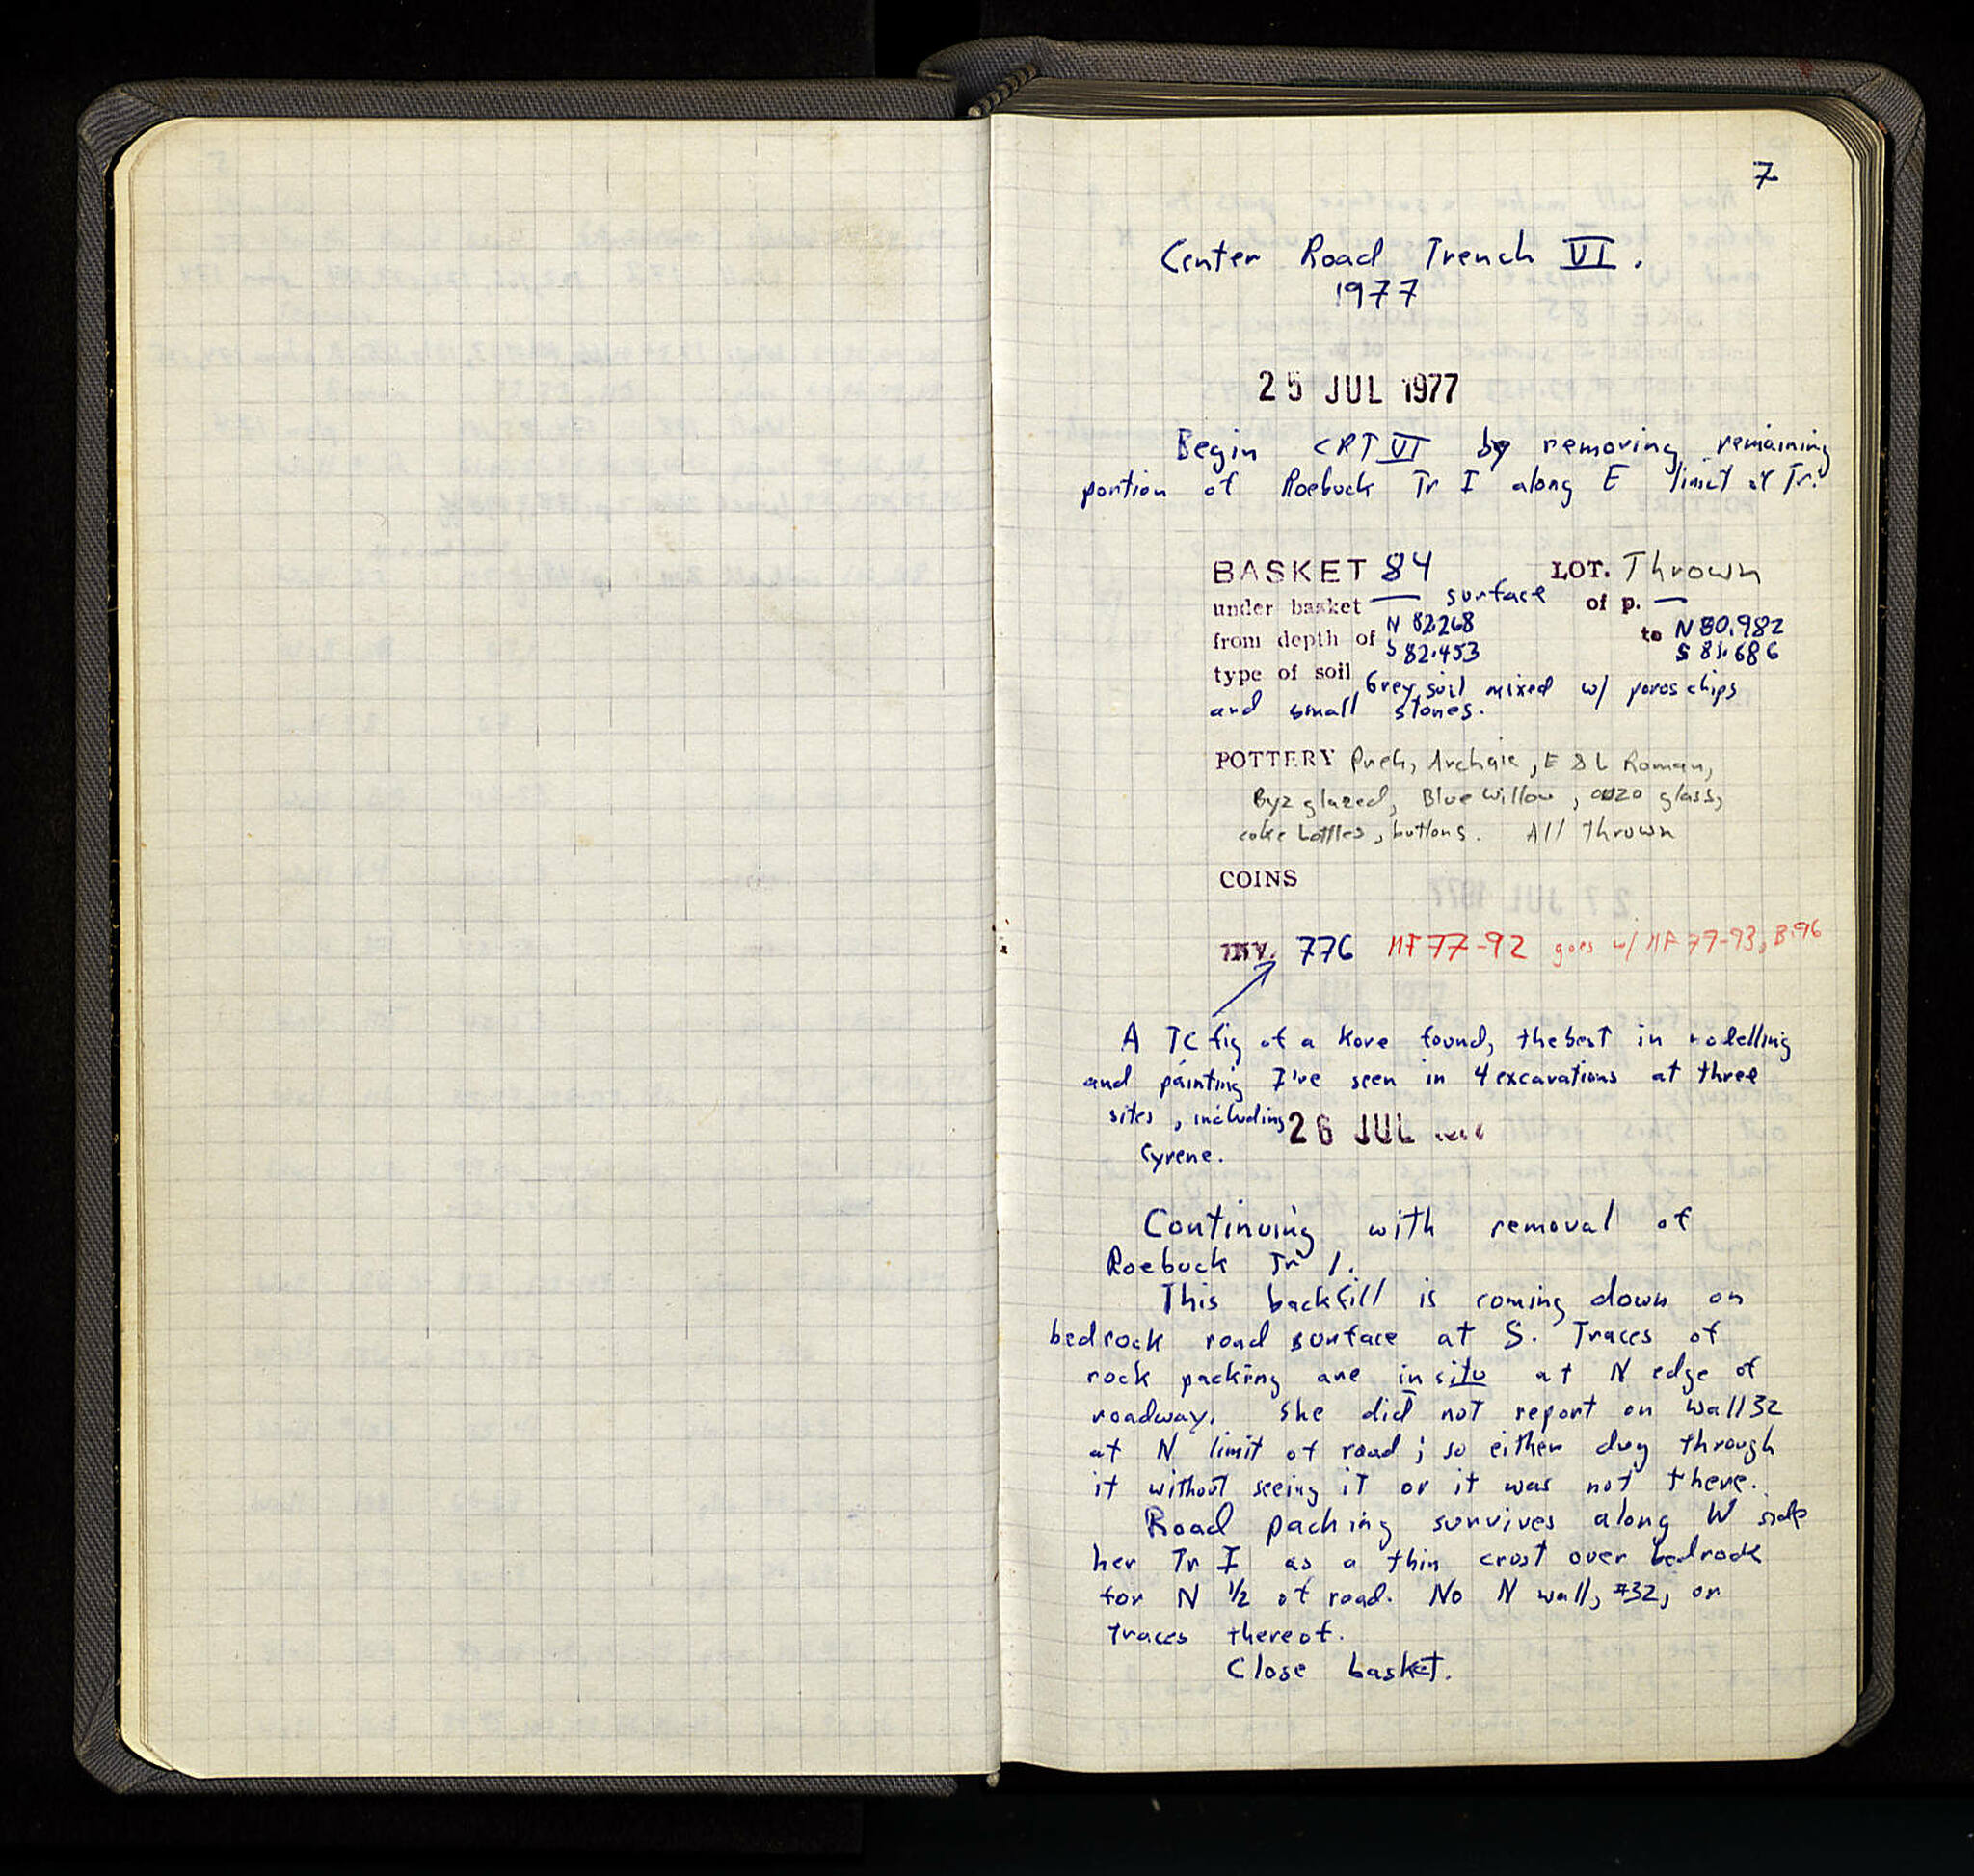 7
Center Road Trench VI.
1977
25 JUL 1977
Begin CRT VI by removing remaining
portion of Roebuck Tr I along E limit of Tr.
BASKET 84 LOT. Thrown
under basket — surface of p. —
from depth of N 82.268 to N 80.982
S 82.453 S 81.686
type of soil Grey soil mixed w/ poros chips
and small stones.
POTTERY Preh, Archaic, E & L Roman,
Byz glazed, Blue Willow, ouzo glass,
coke bottles, buttons. All thrown
COINS
INV. 776 MF 77-92 goes w/ MF 77-93, B.96
A TC fig of a Kore found, the best in modelling
and painting I've seen in 4 excavations at three
sites, including
Cyrene.
26 JUL
Continuing with removal of
Roebuck Tr 1.
This backfill is coming down on
bedrock road surface at S. Traces of
rock packing are in situ at N edge of
roadway. She did not report on wall 32
at N limit of road; so either dug through
it without seeing it or it was not there.
Road packing survives along W side
her Tr I as a thin crust over bedrock
for N 1/2 of road. No N wall, #32, or
traces thereof.
Close basket.